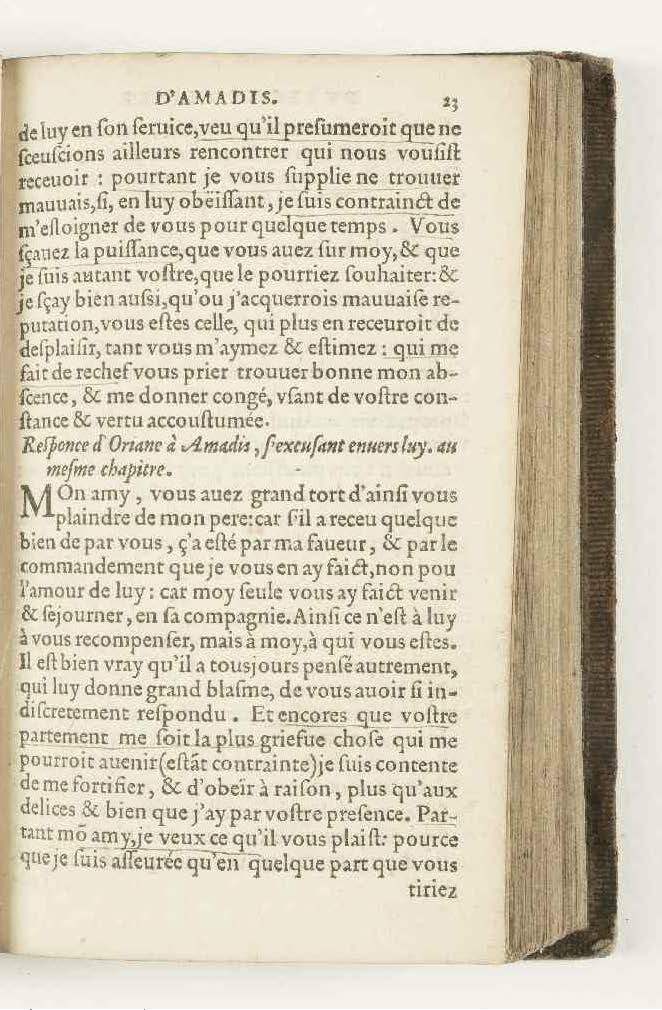 D'AMADIS. 23
de luy en son seruice,veu qu'il presumeroit que ne
sceuscions ailleurs rencontrer qui nous vousist
receuoir : pourtant je vous supplie ne trouuer
mauuais,si, en luy obeïssant, je suis contrainct de
m'esloigner de vous pour quelque temps. Vous
sçauez la puissance,que vous auez sur moy,& que
je suis autant vostre,que le pourriez souhaiter:&
je sçay bien aussi,qu'ou j'acquerrois mauuaise re-
putation,vous estes celle, qui plus en receuroit de
desplaisir, tant vous m'aymez & estimez : qui me
fait de rechef vous prier trouuer bonne mon ab-
scence, & me donner congé, vsant de vostre con-
stance & vertu accoustumée.
Responce d'Oriane à Amadis, s'excusant enuers luy. au
mesme chapitre.
MOn amy, vous auez grand tort d'ainsi vous
plaindre de mon pere:car s'il a receu quelque
bien de par vous, ç'a esté par ma faueur, & par le
commandement que je vous en ay faict,non pou
l'amour de luy : car moy seule vous ay faict venir
& sejourner, en sa compagnie. Ainsi ce n'est à luy
à vous recompenser, mais à moy,à qui vous estes.
Il est bien vray qu'il a tousjours pensé autrement,
qui luy donne grand blasme, de vous auoir si in-
discretement respondu. Et encores que vostre
partement me soit la plus griefue chose qui me
pourroit auenir(estãt contrainte)je suis contente
de me fortifier, & d'obeïr à raison, plus qu'aux
delices & bien que j'ay par vostre presence. Par-
tant mõ amy,je veux ce qu'il vous plaist: pource
que je suis asseurée qu'en quelque part que vous
tiriez